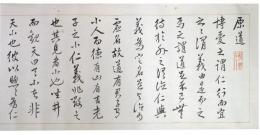 原道
博愛之謂仁行而宜
之之謂義由是而之
焉之謂道足乎己無
待於外之謂德仁與
義為定名道與德為
虛位故道有君子
小人而德有凶有吉老
子之小仁義非毀
之也其見者小也坐井
而觀天曰天小者非
天小也彼以煦煦為仁